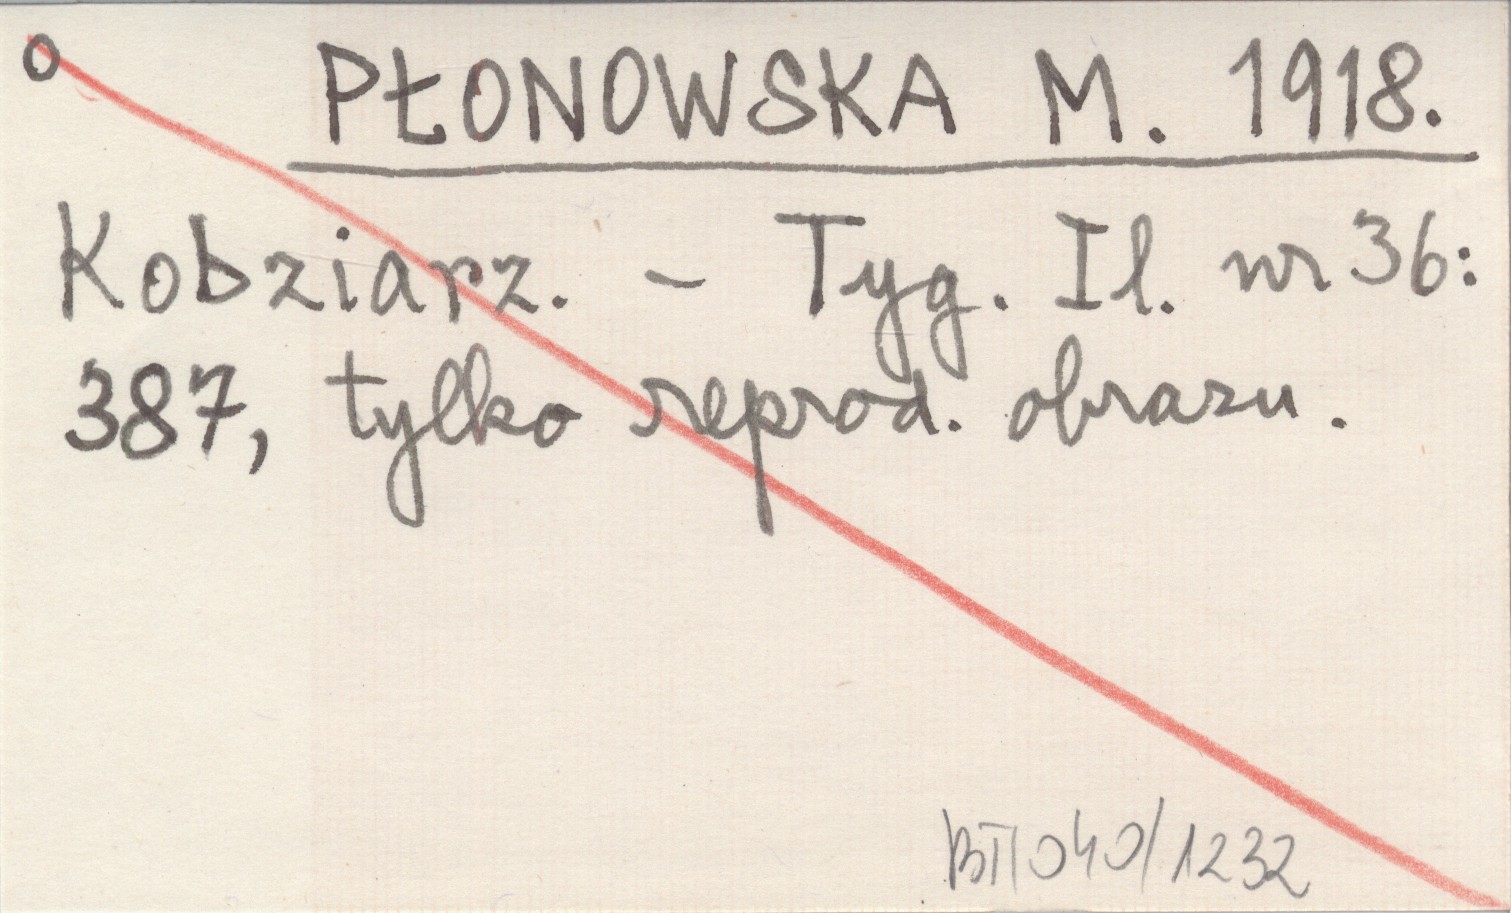 o
PŁONOWSKA M. 1918.
Kobziarz. – Tyg. Il. nr 36:
387, tylko reprod. obrazu.
BTI/040/1232